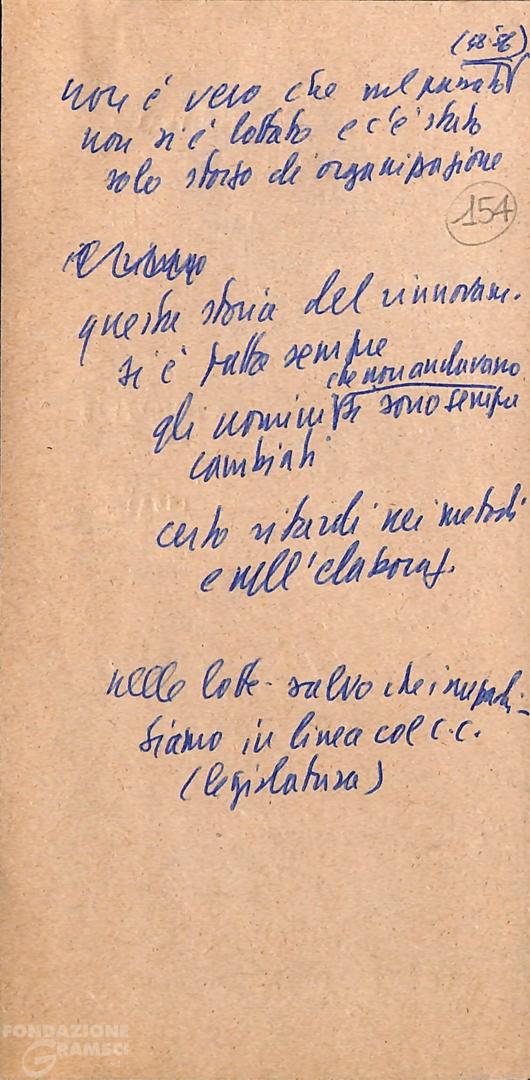 (48-56)
non è vero che nel passato
non si è lottato e c'è stato
solo sforzo di organizzazione
154
questa storia del rinnovam.
si è fatta sempre
che non andavano
gli uomini si sono sempre
cambiati
certo ritardi nei metodi
e nell'elaboraz.
nelle lotte - salvo che
siamo in linea col C.C.
(legislatura)
FONDAZIONE
GRAMSCI